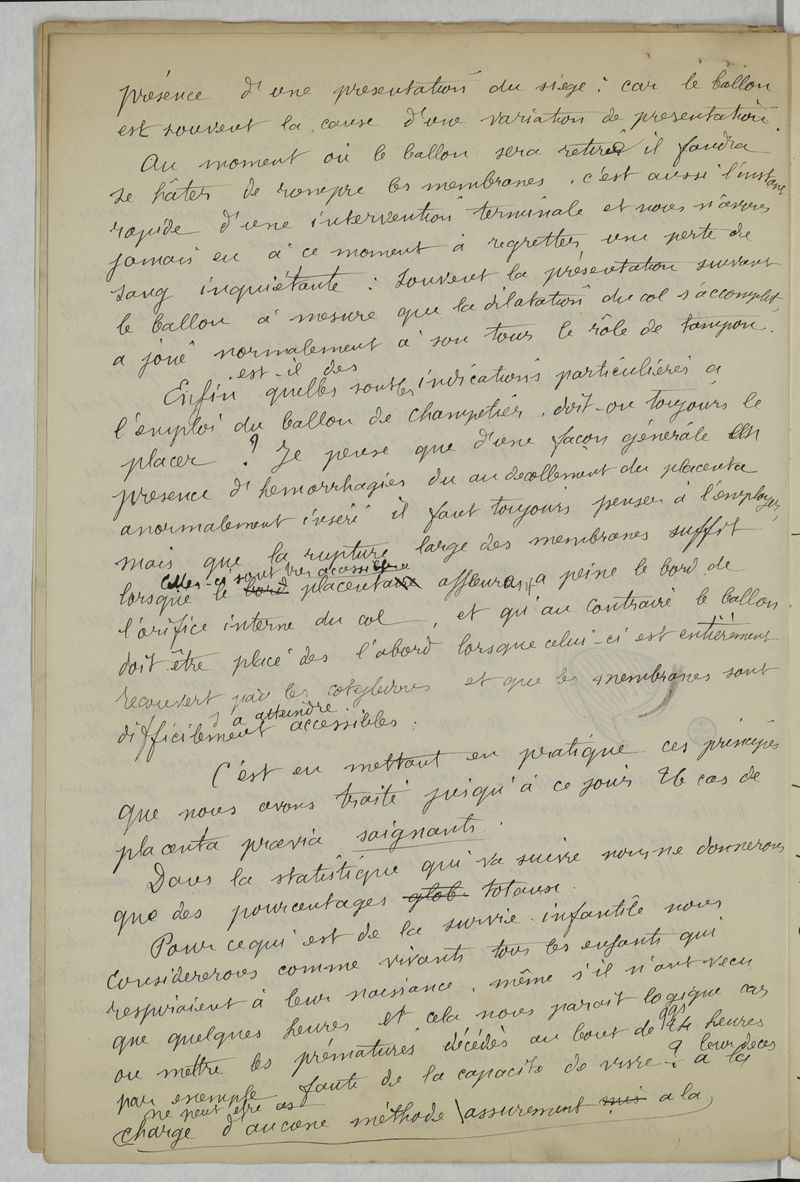 présence d'une presentation du siège : car le ballon
est souvent la cause d'une variation de presentation.
Au moment où le ballon sera retiré il faudra
se hâter de rompre les membranes. c'est aussi l'instant
rapide d'une intervention terminale et nous n'avons
jamais eu à ce moment à regretter une perte de
sang inquiétante : souvent la présentation suivant
le ballon à mesure que la dilatation du col s'accomplit
a joué normalement à son tour le rôle de tampon.
est-il des
Enfin quelles sont les indications particulières à
l'emploi du ballon de Champetier, doit-on toujours le
placer ? Je pense que d'une façon générale en
presence d'hemorrhagies du au decollement du placenta
anormalement inséré il faut toujours penser à l'employer,
mais que la rupture large des membranes suffit
celles-ci sont très accessibles
lorsque le bord placenta affleurant à peine le bord de
l'orifice interne du col, et qu'au contraire le ballon
doit être placé dès l'abord lorsque celui-ci est entièrement
recouvert par les cotyledons et que les membranes sont
à atteindre
difficilement accessibles.
C'est en mettant en pratique ces principes
que nous avons traité jusqu'à ce jour 26 cas de
placenta prævia saignants.
Dans la statistique qui va suivre nous ne donnerons
que des pourcentages glob. totaux.
Pour ce qui est de la survie infantile nous
considererons comme vivants tous les enfants qui
respiraient à leur naissance, même s'il n'ont vecu
que quelques heures et cela nous parait logique car
ou mettre les prématurés décédés au bout de 24 heures
leur deces
par exemple faute de la capacité de vivre ? à la
ne peut être
charge d'aucune méthode assurement mis a la